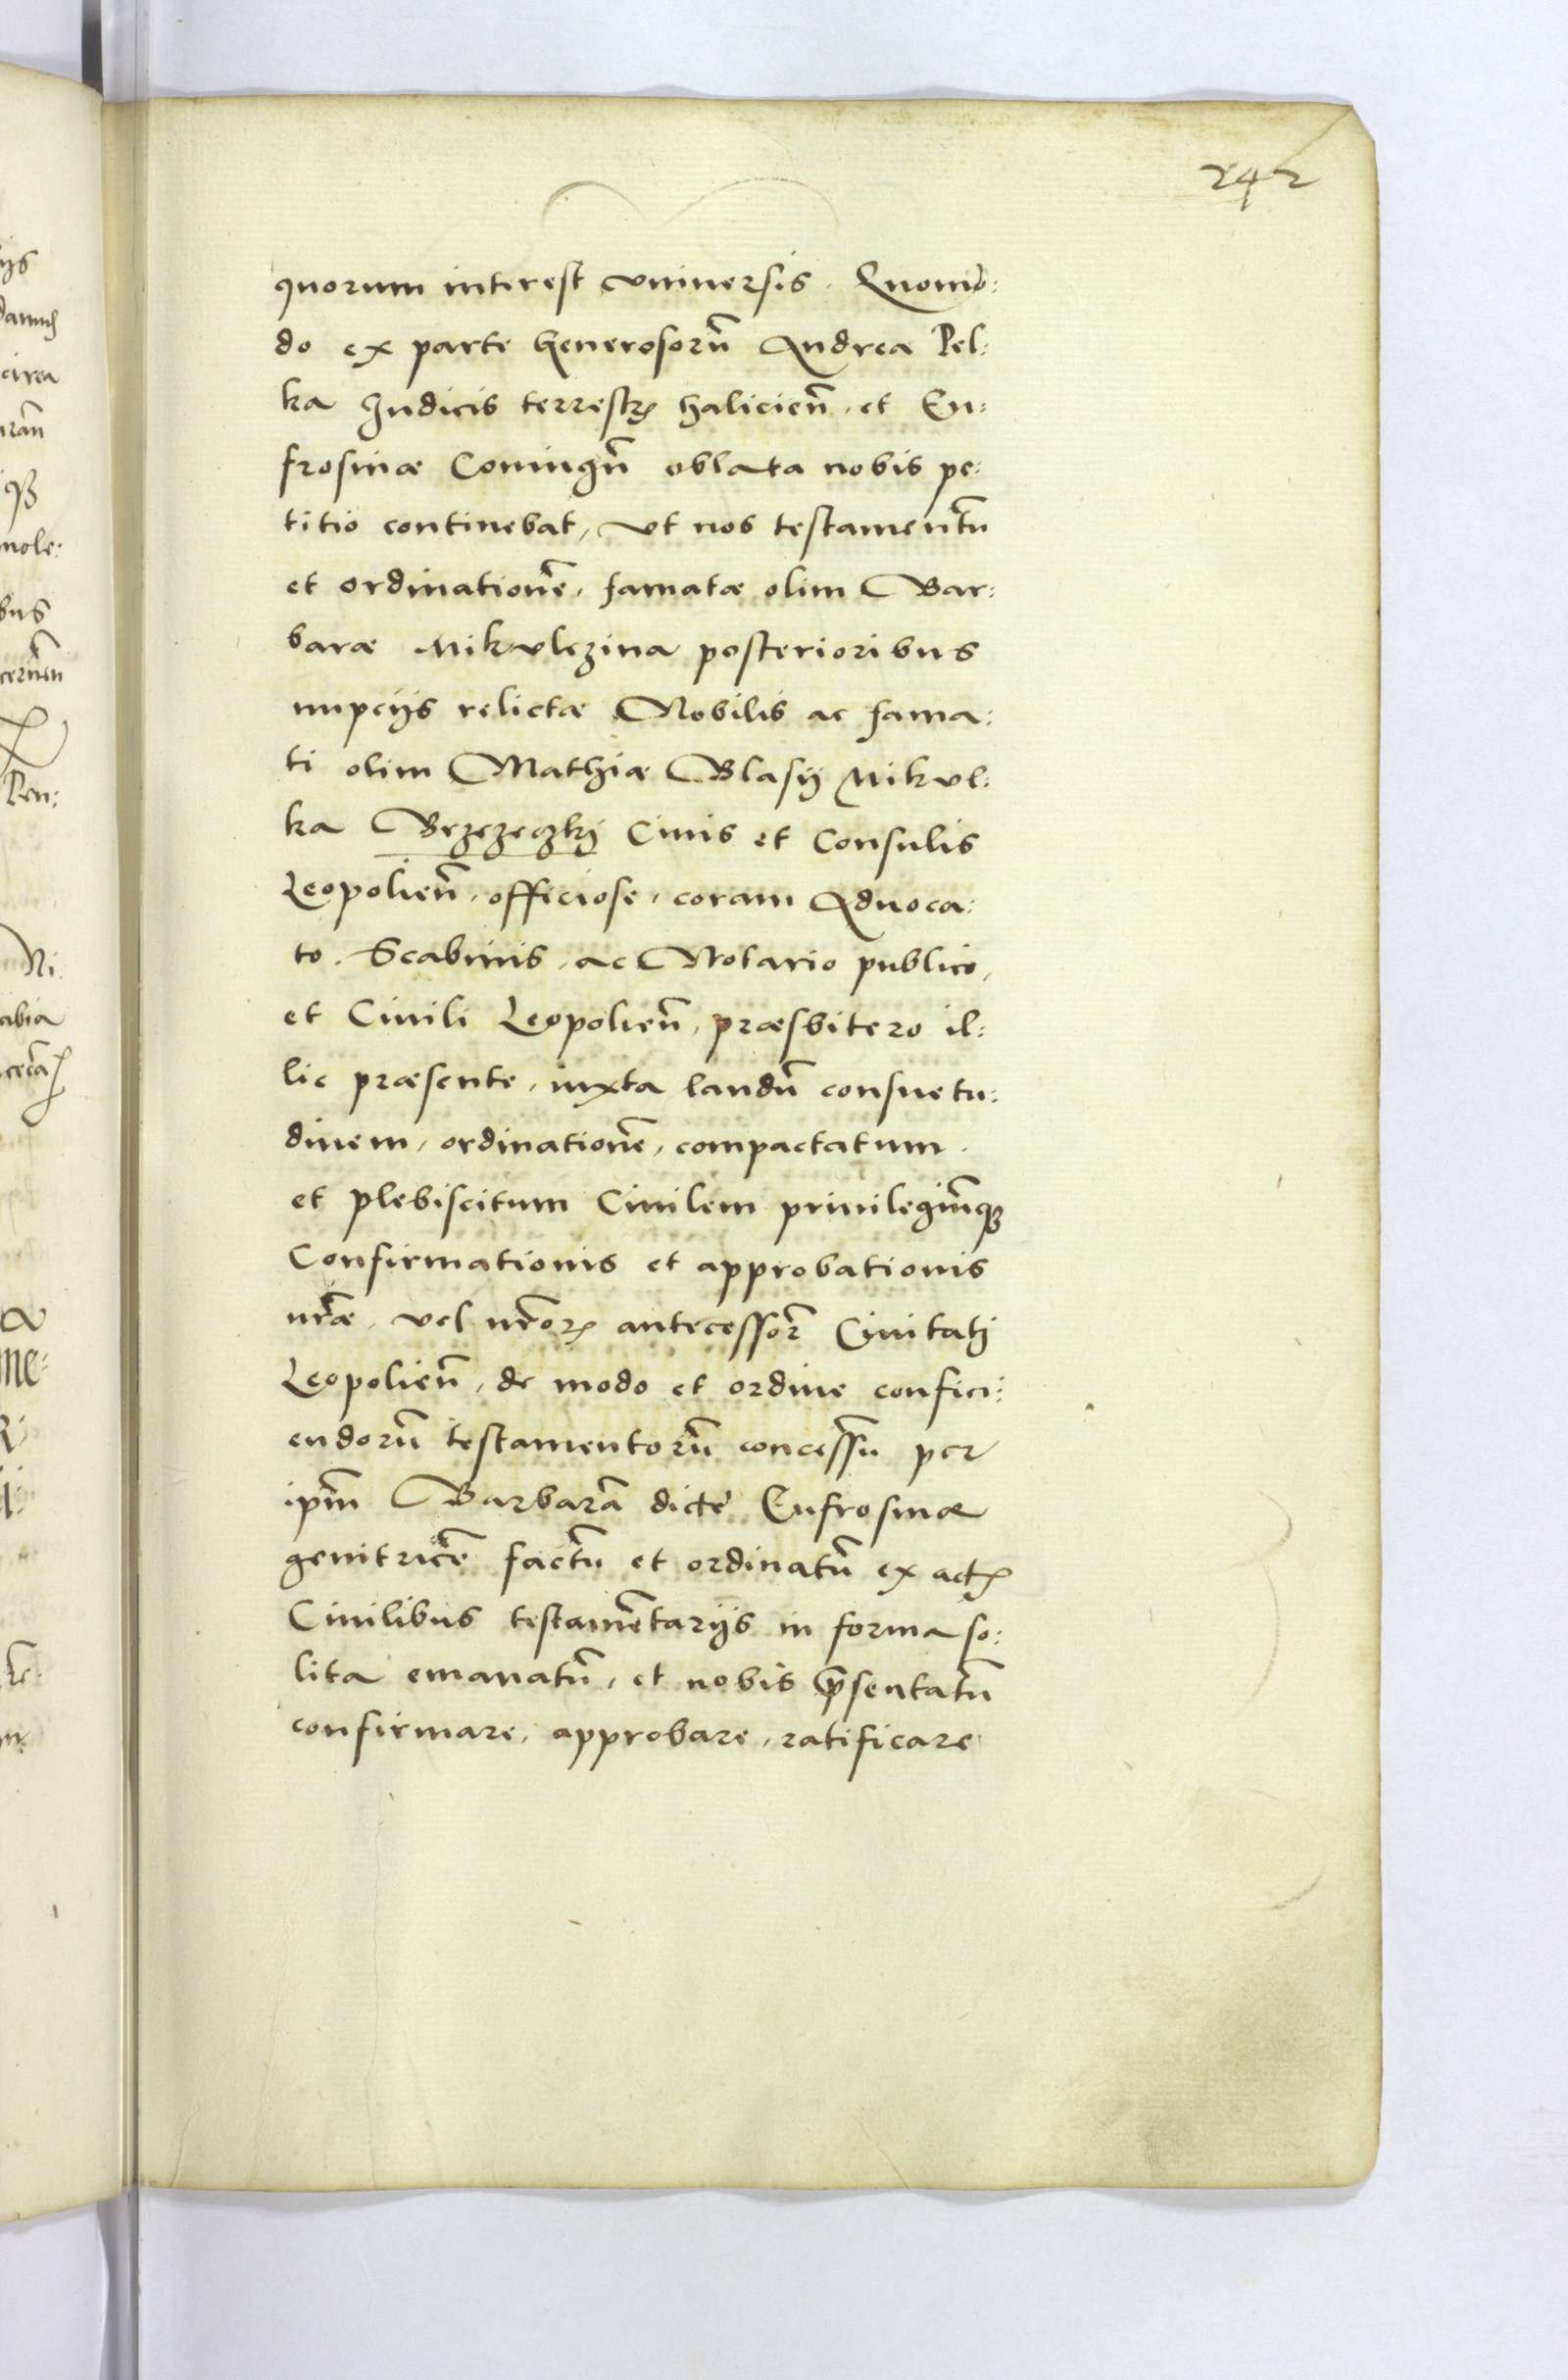 242
quorum interest vniuersis. Quomo:
do ex parte Generosorũ Andrea Pel:
ka Iudicis terrestrꝭ halicieñ. et Eu:
frosinæ Coniugũ oblata nobis pe:
titio continebat, vt nos testamentũ
et ordinationẽ, famatæ olim Bar:
baræ Mikulczina posterioribus
nupcijs relictæ Nobilis ac fama:
ti olim Mathiæ Blasij Mikul:
ka Brzezeczkj Ciuis et Consulis
Leopolieñ, officiose, coram Aduoca:
to. Scabinis, ac Notario publico,
et Ciuili Leopolieñ, præsbitero il:
lic præsente, iuxta laudũ consuetu:
dinem, ordinationẽ, compactatum.
et plebiscitum Ciuilem priuilegiũq3
Confirmationis et approbationis
nr̃æ, vel nr̃orꝭ antecessor̃ Ciuitatj
Leopolieñ, de modo et ordine confici:
endorũ testamentorũ concessũ per
ipm̃ Barbarã dictę Eufrosinæ
genitricẽ factũ et ordinatũ ex actꝭ
Ciuilibus testamẽtarijs in forma so:
lita emanatũ, et nobis p̃sentatũ
confirmare, approbare, ratificare
ijs
circa
nole:
bus
Pen:
Ni:
abia
me: